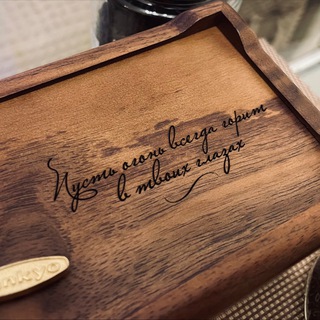 Пусть огонь всегда горит
в твоих глазах